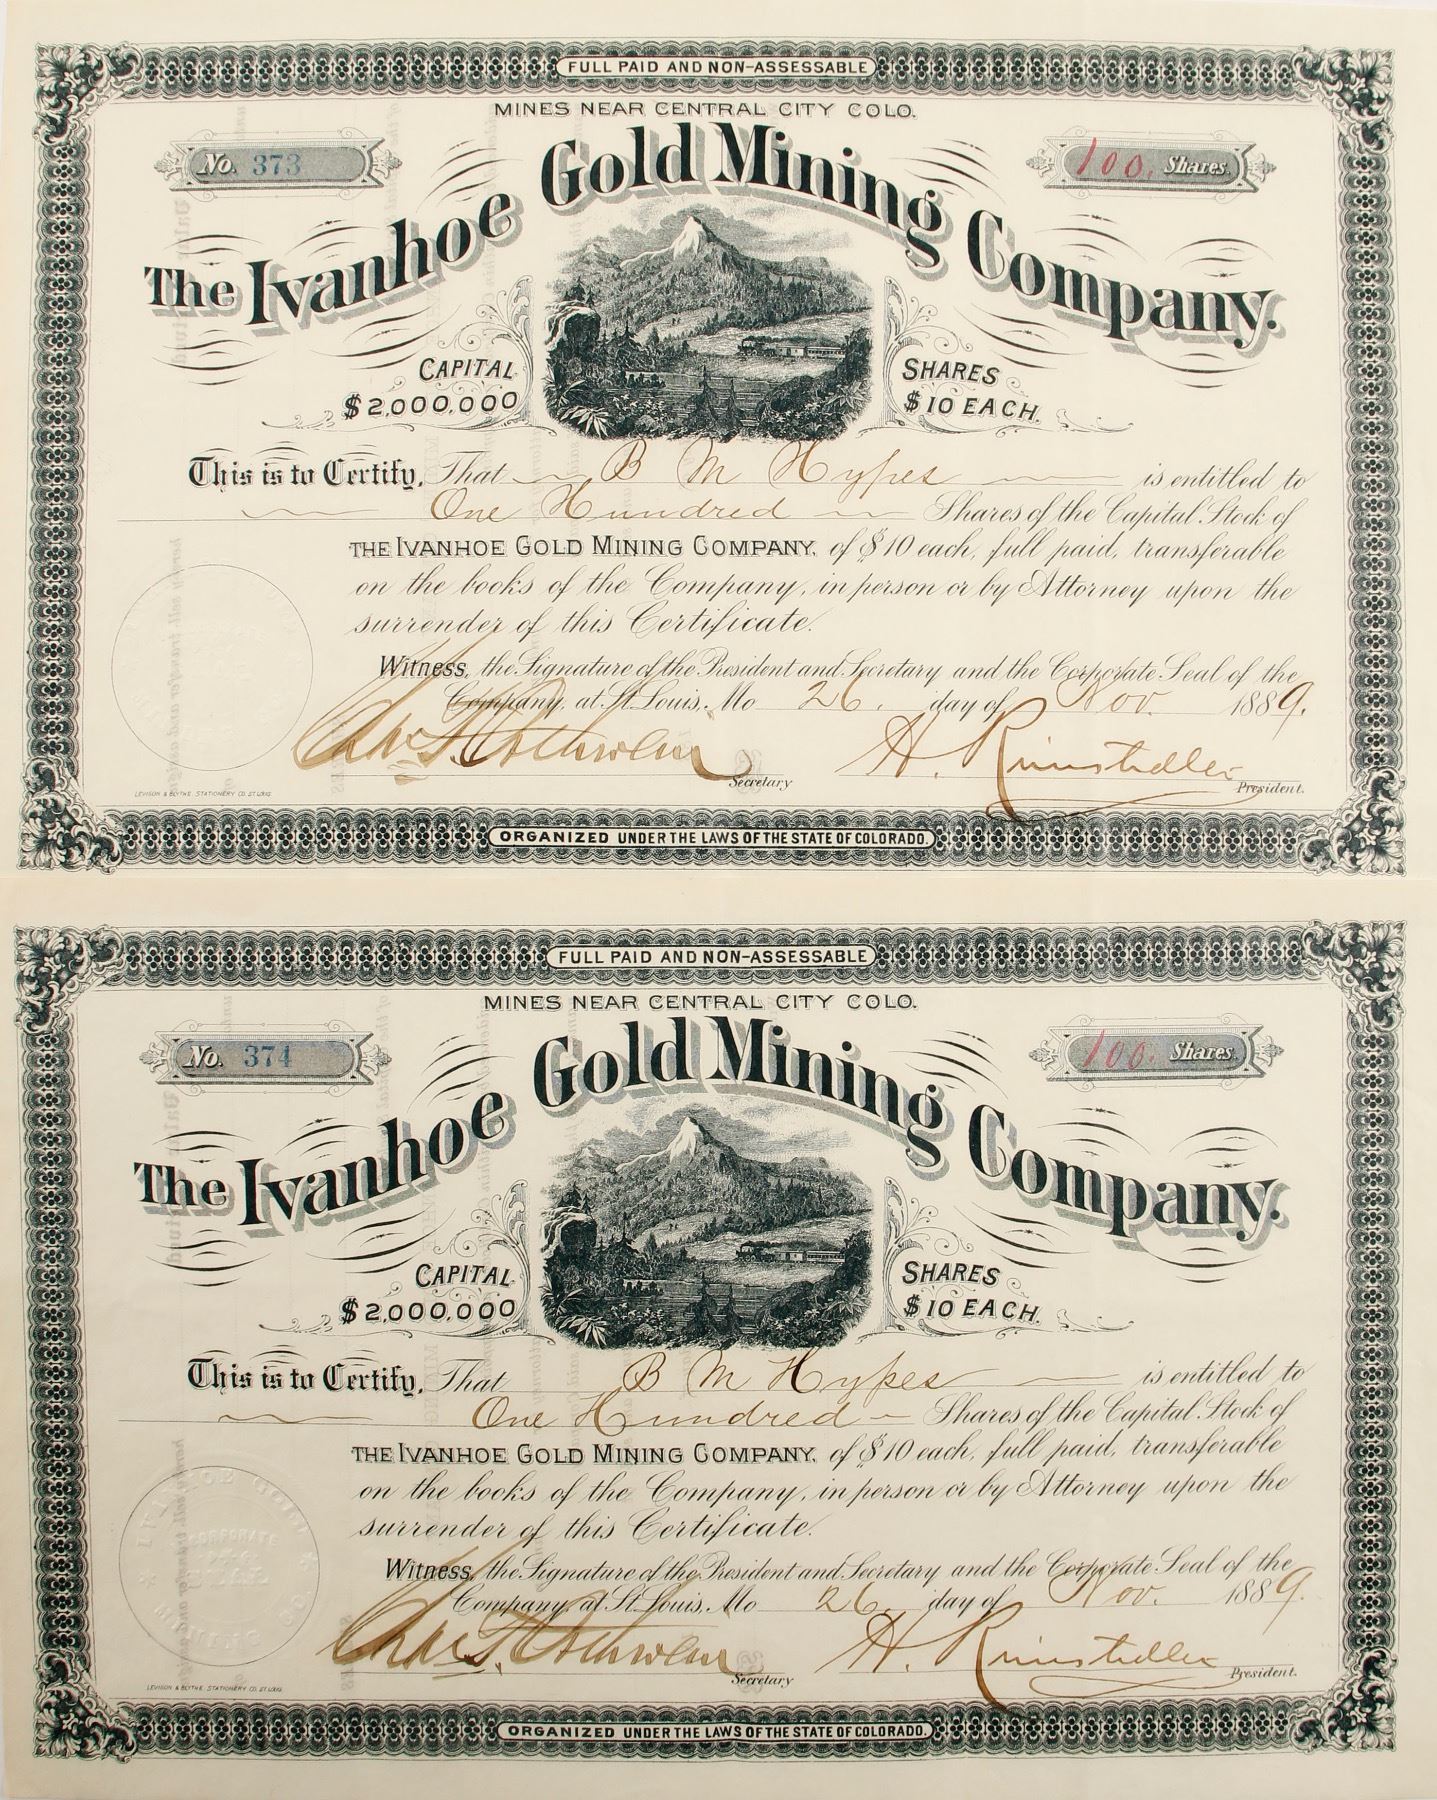 FULL PAID AND NON-ASSESSABLE
MINES NEAR CENTRAL CITY COLO.
No. 373
100. Shares.
The Ivanhoe Gold Mining Company.
CAPITAL $2,000,000
SHARES $10 EACH.
This is to Certify, That B M Hypes is entitled to
One Hundred Shares of the Capital Stock of
THE IVANHOE GOLD MINING COMPANY, of $10 each, full paid, transferable
on the books of the Company, in person or by Attorney upon the
surrender of this Certificate.
Witness, the Signature of the President and Secretary and the Corporate Seal of the
Company, at St. Louis, Mo 26. day of Nov. 1889.
Secretary
H. Rinnstidler
President.
LEVISON & BLYTHE STATIONERY CO. ST. LOUIS
ORGANIZED UNDER THE LAWS OF THE STATE OF COLORADO.
FULL PAID AND NON-ASSESSABLE
MINES NEAR CENTRAL CITY COLO.
No. 374
100. Shares.
The Ivanhoe Gold Mining Company.
CAPITAL $2,000,000
SHARES $10 EACH.
This is to Certify, That B M Hypes is entitled to
One Hundred Shares of the Capital Stock of
THE IVANHOE GOLD MINING COMPANY, of $10 each, full paid, transferable
on the books of the Company, in person or by Attorney upon the
surrender of this Certificate.
IVANHOE GOLD MINING CO
CORPORATE
SEAL
Witness, the Signature of the President and Secretary and the Corporate Seal of the
Company, at St. Louis, Mo 26. day of Nov. 1889.
Secretary
H. Rinnstidler
President.
LEVISON & BLYTHE STATIONERY CO. ST. LOUIS
ORGANIZED UNDER THE LAWS OF THE STATE OF COLORADO.